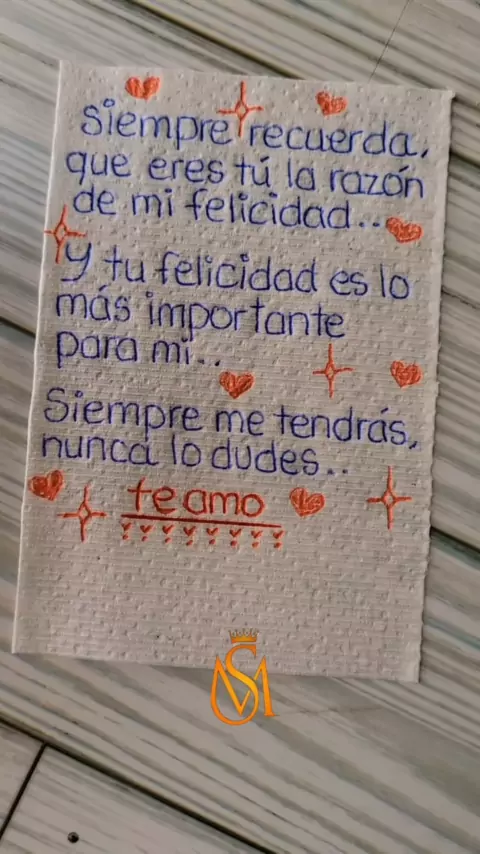 Siempre recuerda,
que eres tú la razón
de mi felicidad..
Y tu felicidad es lo
más importante
para mi..
Siempre me tendrás,
nunca lo dudes..
te amo
SM